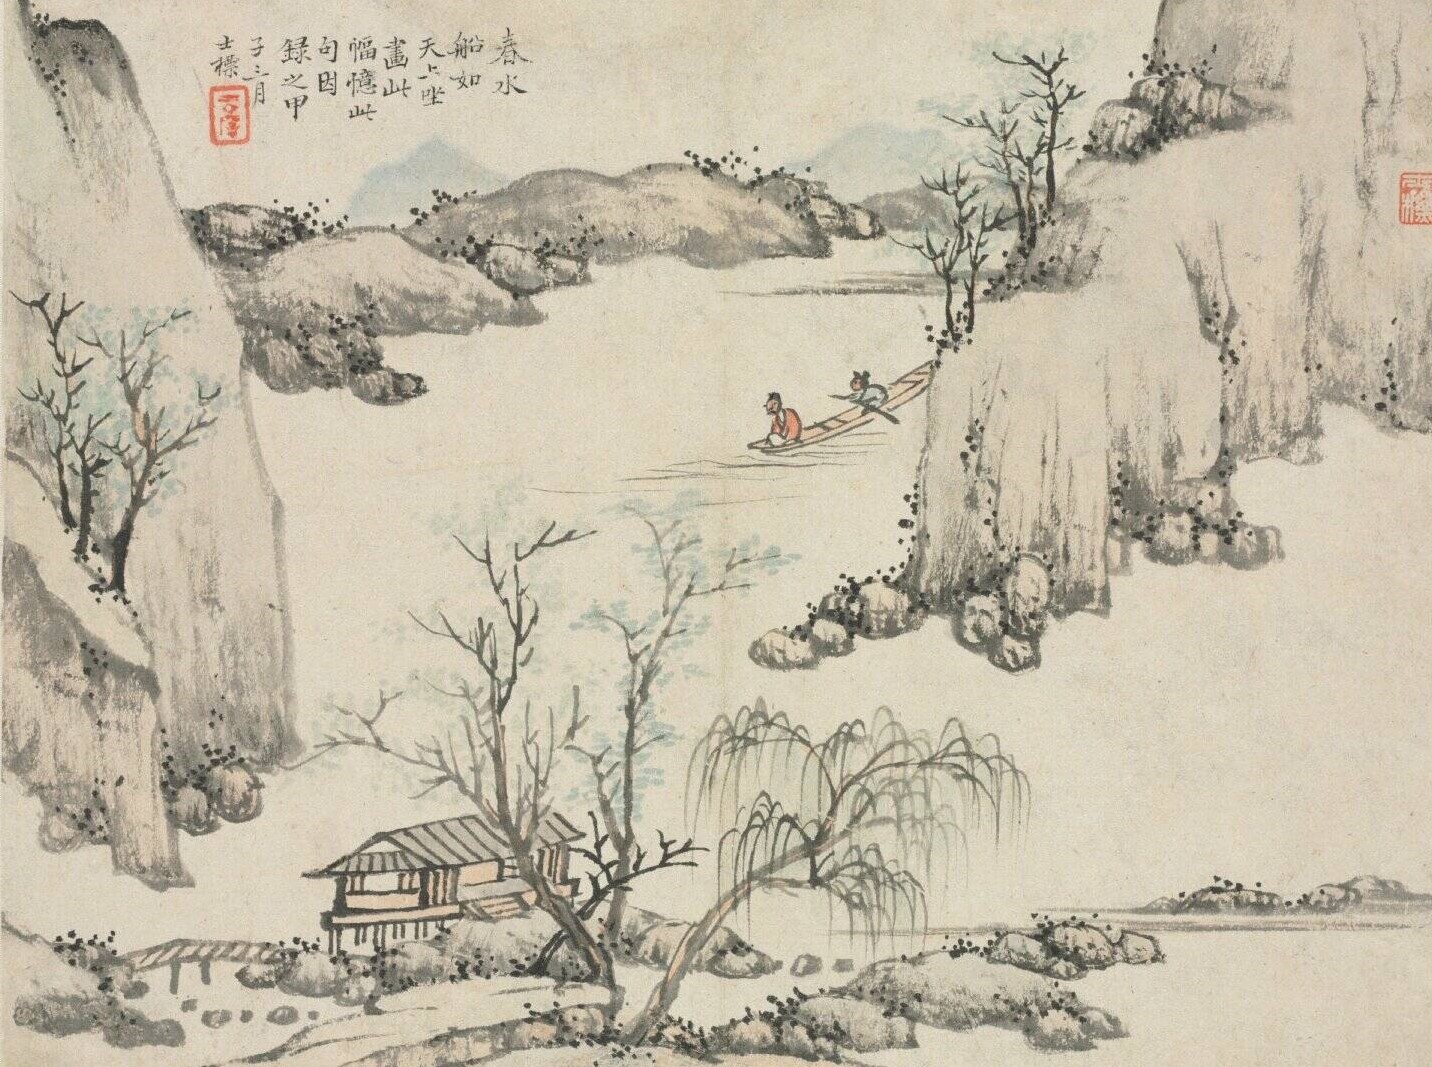 春水
船如
天上坐
畫此
幅憶此
句因
録之甲
子三月
士標
士標